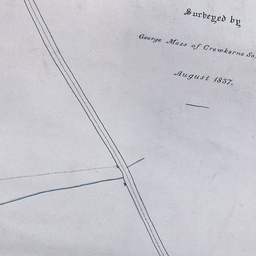 Surveyed by
George Moss of Crewkerne
August 1837.